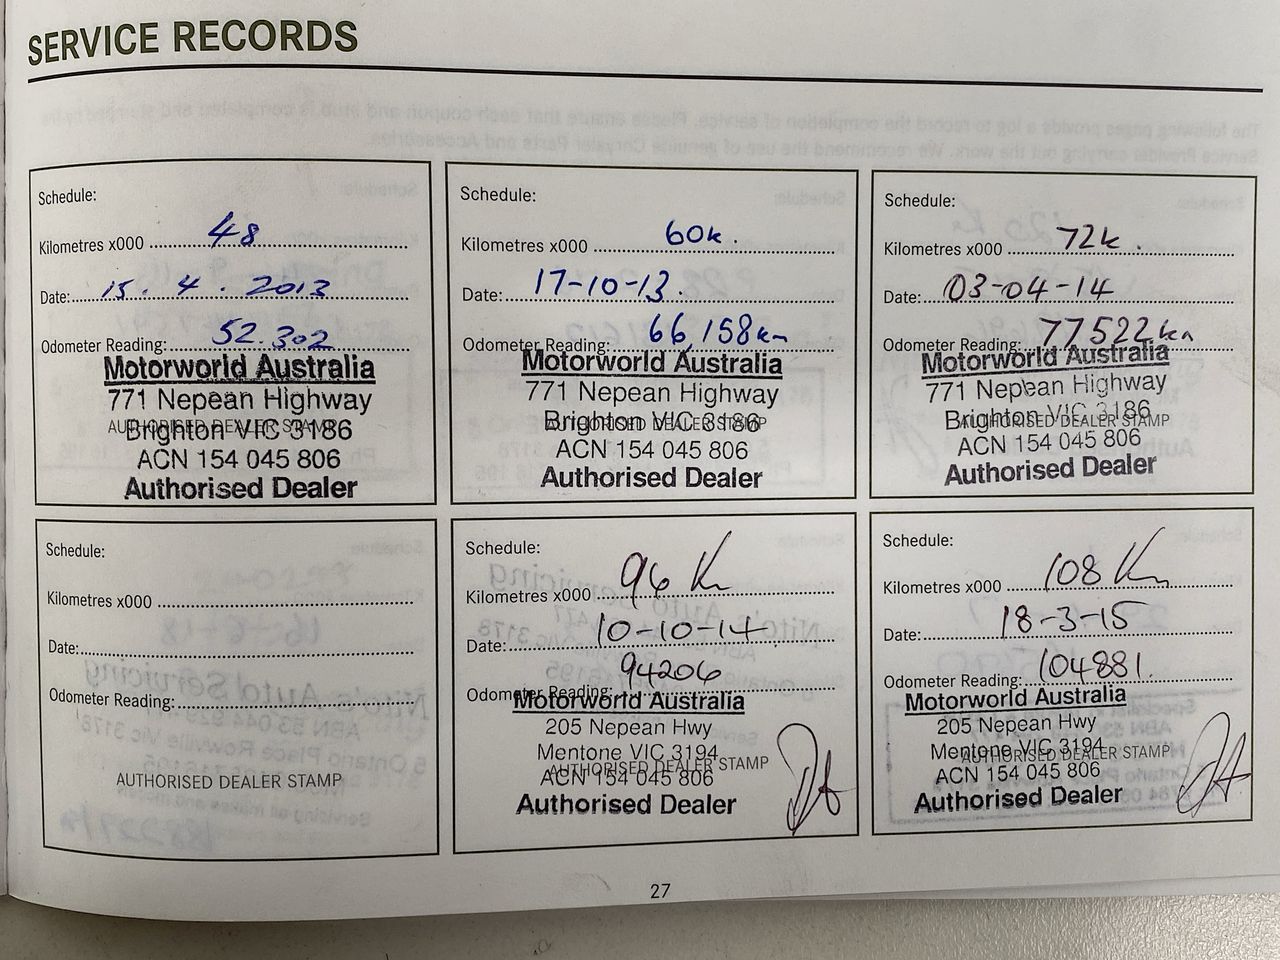 SERVICE RECORDS
Schedule:
Kilometres x000 48
Date: 15. 4. 2013
Odometer Reading: 52.302
Motorworld Australia
771 Nepean Highway
Brighton VIC 3186
AUTHORISED DEALER STAMP
ACN 154 045 806
Authorised Dealer
Schedule:
Kilometres x000 60k.
Date: 17-10-13.
Odometer Reading: 66,158km
Motorworld Australia
771 Nepean Highway
Brighton VIC 3186
AUTHORISED DEALER STAMP
ACN 154 045 806
Authorised Dealer
Schedule:
Kilometres x000 72k.
Date: 03-04-14
Odometer Reading: 77522km
Motorworld Australia
771 Nepean Highway
Brighton VIC 3186
AUTHORISED DEALER STAMP
ACN 154 045 806
Authorised Dealer
Schedule:
Kilometres x000
Date:
Odometer Reading:
AUTHORISED DEALER STAMP
Schedule:
Kilometres x000 96 K
Date: 10-10-14
Odometer Reading: 94206
Motorworld Australia
205 Nepean Hwy
Mentone VIC 3194
AUTHORISED DEALER STAMP
ACN 154 045 806
Authorised Dealer
Schedule:
Kilometres x000 108 K
Date: 18-3-15
Odometer Reading: 104881.
Motorworld Australia
205 Nepean Hwy
Mentone VIC 3194
AUTHORISED DEALER STAMP
ACN 154 045 806
Authorised Dealer
27